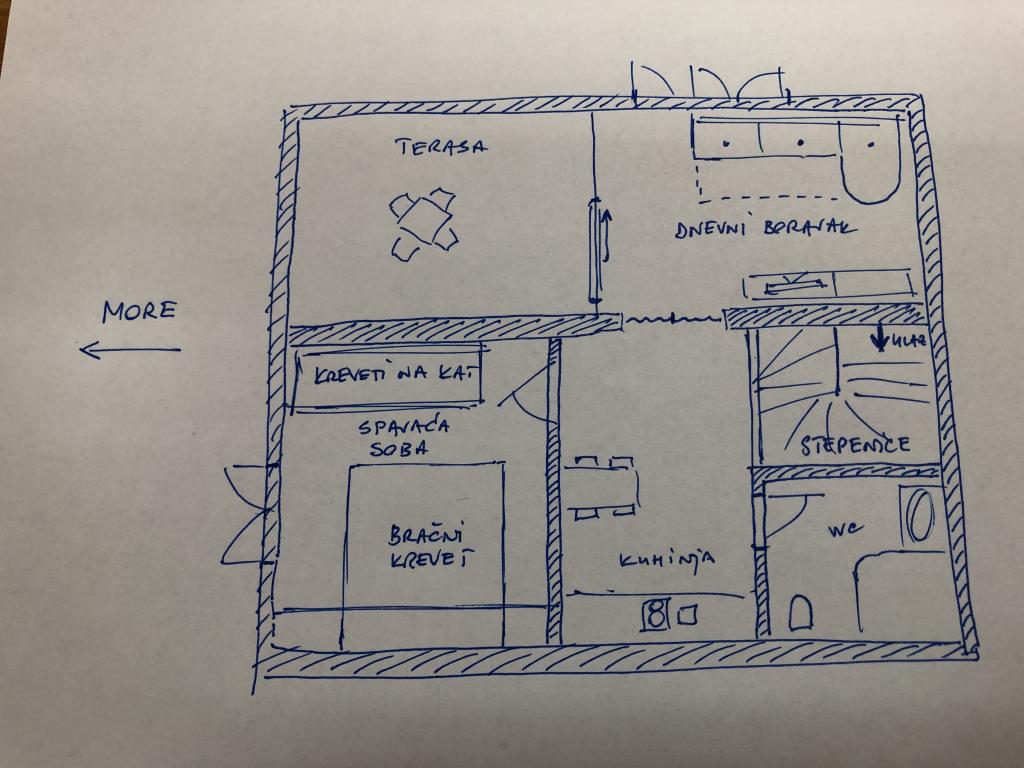 TERASA
DNEVNI BORAVAK
MORE
KREVETI NA KAT
ULAZ
SPAVAĆA
SOBA
STEPENICE
BRAČNI
KREVET
WC
KUHINJA